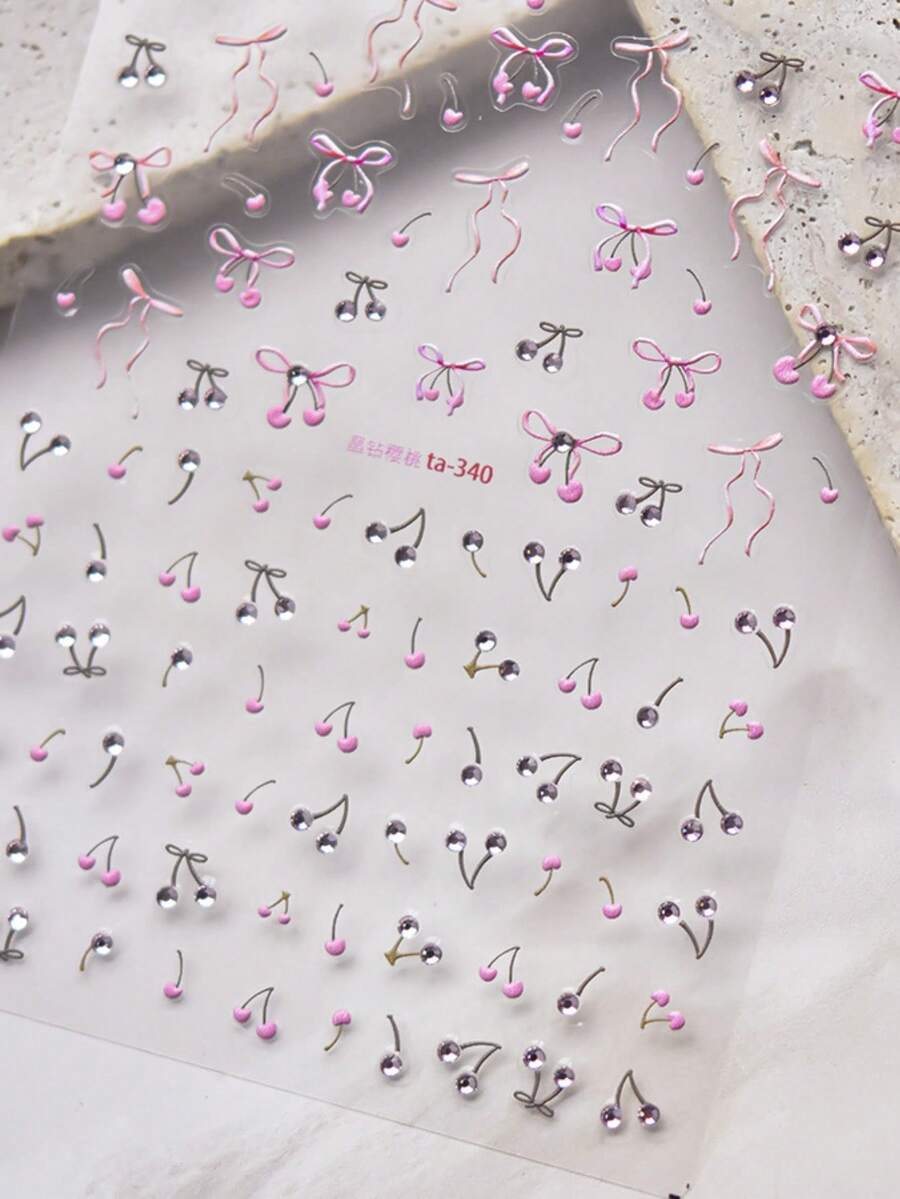 晶钻樱桃 ta-340